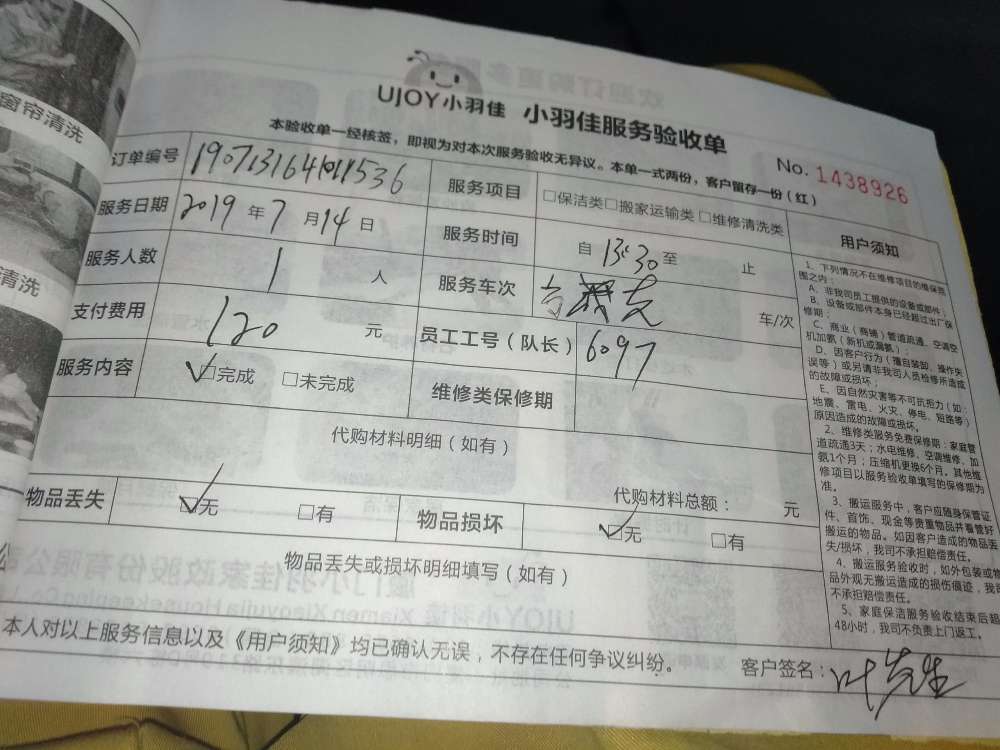 窗帘清洗
清洗
UJOY小羽佳 小羽佳服务验收单
本验收单一经核签，即视为对本次服务验收无异议。本单一式两份，客户留存一份（红）
No. 1438926
订单编号
服务项目 □保洁类□搬家运输类□维修清洗类
服务日期 2019 年 7 月 14 日
服务时间 自 13:30 至 止
服务人数 1 人
服务车次 车/次
支付费用 120 元
员工工号（队长） 6097
服务内容 ☑完成 □未完成
维修类保修期
代购材料明细（如有）
代购材料总额： 元
物品丢失 ☑无 □有
物品损坏 ☑无 □有
物品丢失或损坏明细填写（如有）
用户须知
1、下列情况不在维修项目的维保范
围之内：
A、非我司员工提供的设备或部件；
B、设备或部件本身已经超过出厂保
修期；
C、商业（商铺）管道疏通、空调空
机加氨（新机或漏氨）；
D、因客户行为（擅自装卸、操作失
误等）或另请非我司人员检修所造成
的故障或损坏；
E、因自然灾害等不可抗拒力（如：
地震、雷电、火灾、停电、短路等）
原因造成的故障或损坏。
2、维修类服务免费保修期：家庭管
道疏通3天；水电维修、空调维修、加
氨1个月；压缩机更换6个月。其他维
修项目以服务验收单填写的保修期为
准。
3、搬运服务中，客户应随身保管证
件、首饰、现金等贵重物品并看管好
搬运的物品。如因客户造成的物品丢
失/损坏，我司不承担赔偿责任。
4、搬运服务验收时，如外包装或物
品外观无搬运造成的损伤痕迹，我司
不承担赔偿责任。
5、家庭保洁服务验收结束后超
48小时，我司不负责上门返工。
本人对以上服务信息以及《用户须知》均已确认无误，不存在任何争议纠纷。
客户签名：叶先生